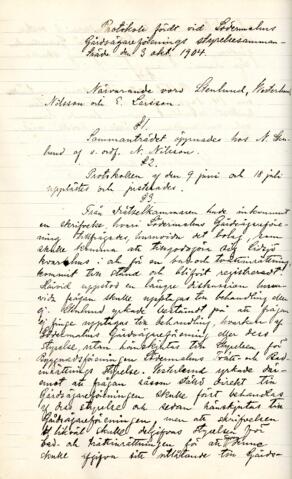 Protokoll fördt vid Södermalms
Gårdsägareförenings styrelsesamman-
träde den 3 okt. 1904.
Närvarande voro Stenlund,
Nilsson och E. Larsson.
§1
Sammanträdet öppnades hos N. Sten-
lund af v. ordf. N. Nilsson.
§2.
Protokollen af den 9 juni och 18 juli
upplästes och justerades.
§3
Från Drätselkammaren hade inkommit
en skrifvelse, hvari Södermalms Gårdsägareföre-
ning tillfrågades huruvida det bolag, som
skulle komma att
och för en bad och tvättinrättning
kommit till stånd och blifvit registreradt.
Härvid uppstod en längre diskussion huru-
vida frågan skulle upptagas till behandling eller
ej. Stenlund yrkade bestämdt på att frågan
ej finge upptagas till behandling, hvarken af
Södermalms Gårdsägareförening eller dess
styrelse, utan hänskjutas till Styrelsen för
Byggnadsföreningen Södermalms Tvätt- och Bad-
inrättnings styrelse. yrkade där-
emot att frågan såsom ställd direkt till
Gårdsägareföreningen skulle först behandlas
af dess styrelse och sedan hänskjutas till
Gårdsägareföreningen, men att skrifvelsen
likväl skulle delgifvas styrelsen för
bad- och tvättinrättningen för att denna
skulle afgifva sitt utlåtande till Gårds-